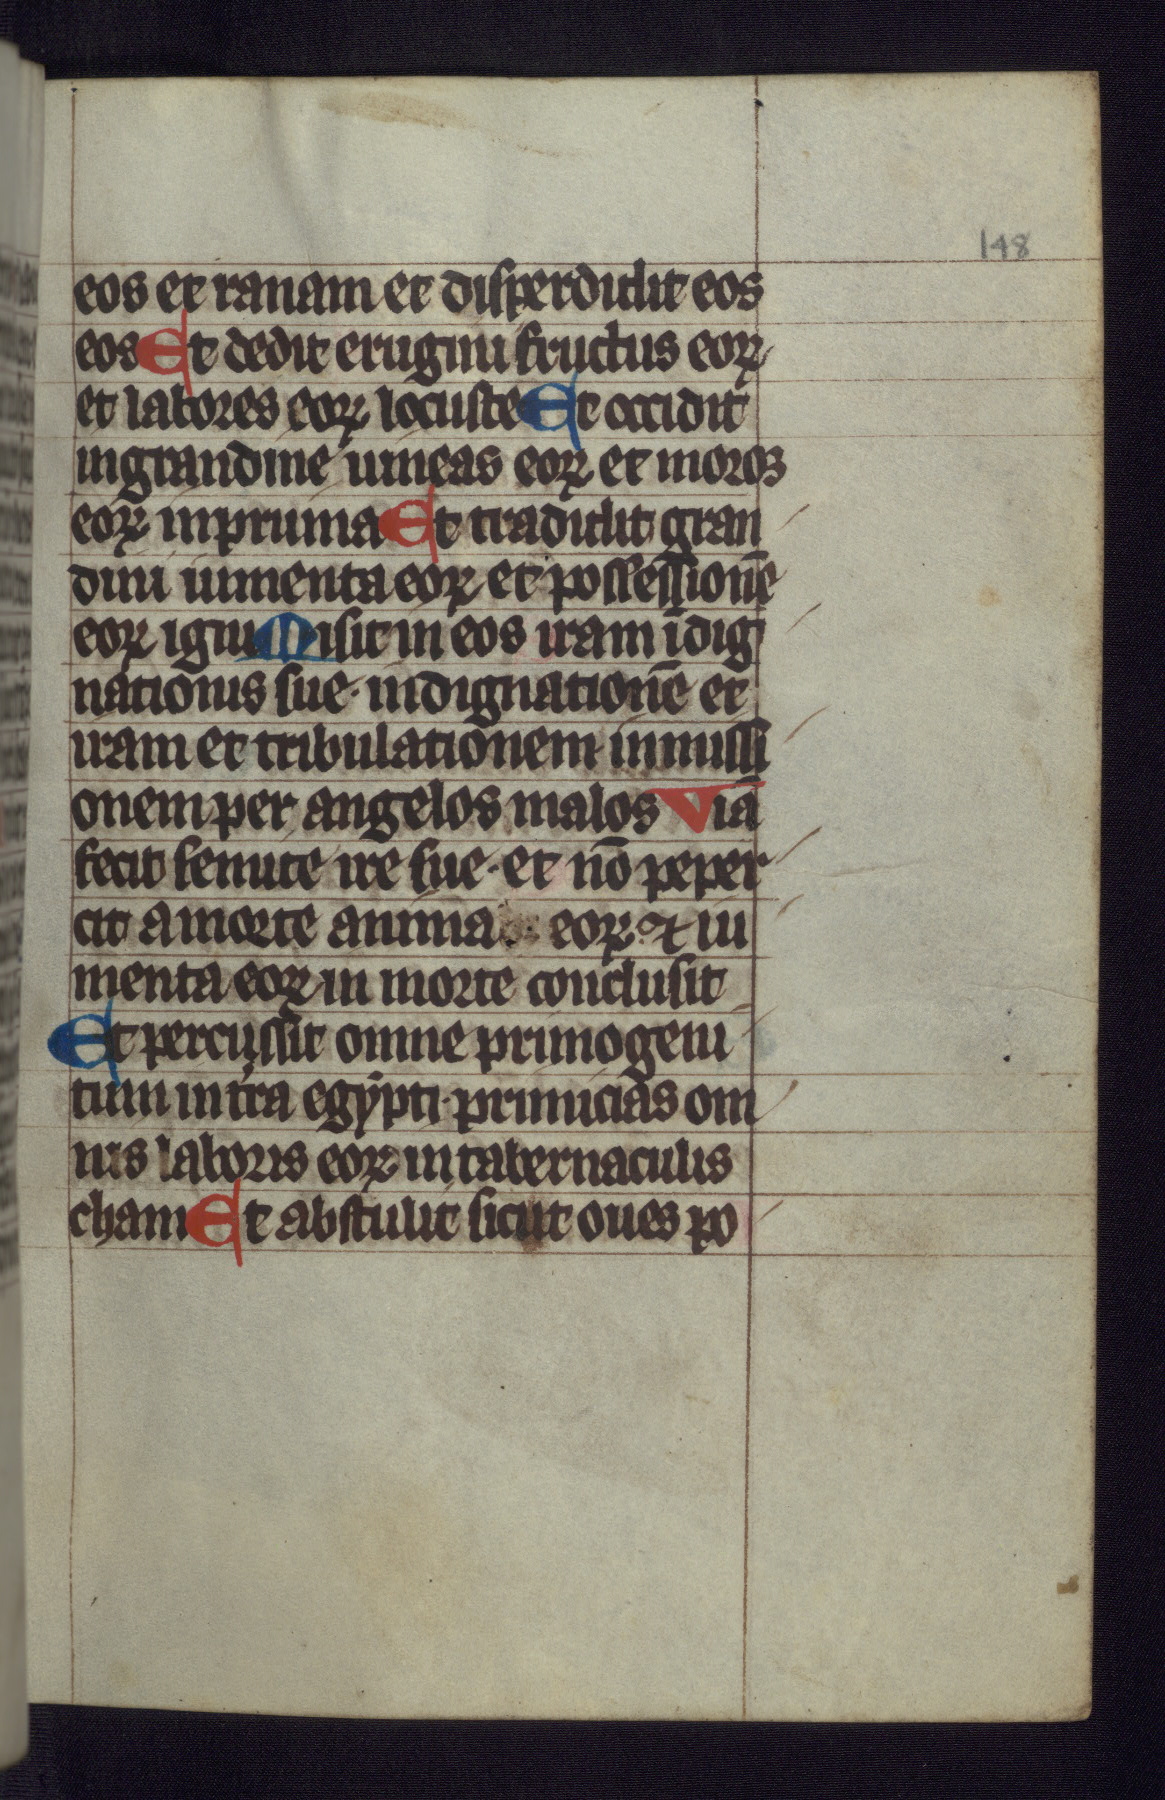 148
eos et ranam et disperdidit eos
eos Et dedit erugini fructus eoꝝ
et labores eoꝝ locuste Et occidit
ingrandine uineas eoꝝ et moros
eoꝝ inpruina Et tradidit gran
dini iumenta eoꝝ et possessionē
eoꝝ igni Misit in eos iram īdig
nationis sue · indignationē et
iram et tribulationem inmissi
onem per angelos malos Viā
fecit semite ire sue · et nō peper
cit a morte anima eoꝝ · ⁊ iu
menta eoꝝ in morte conclusit
Et percussit omne primogeni
tum in tr̄a egypti · primicias om
nis laboris eoꝝ in tabernaculis
cham Et abstulit sicut oues po